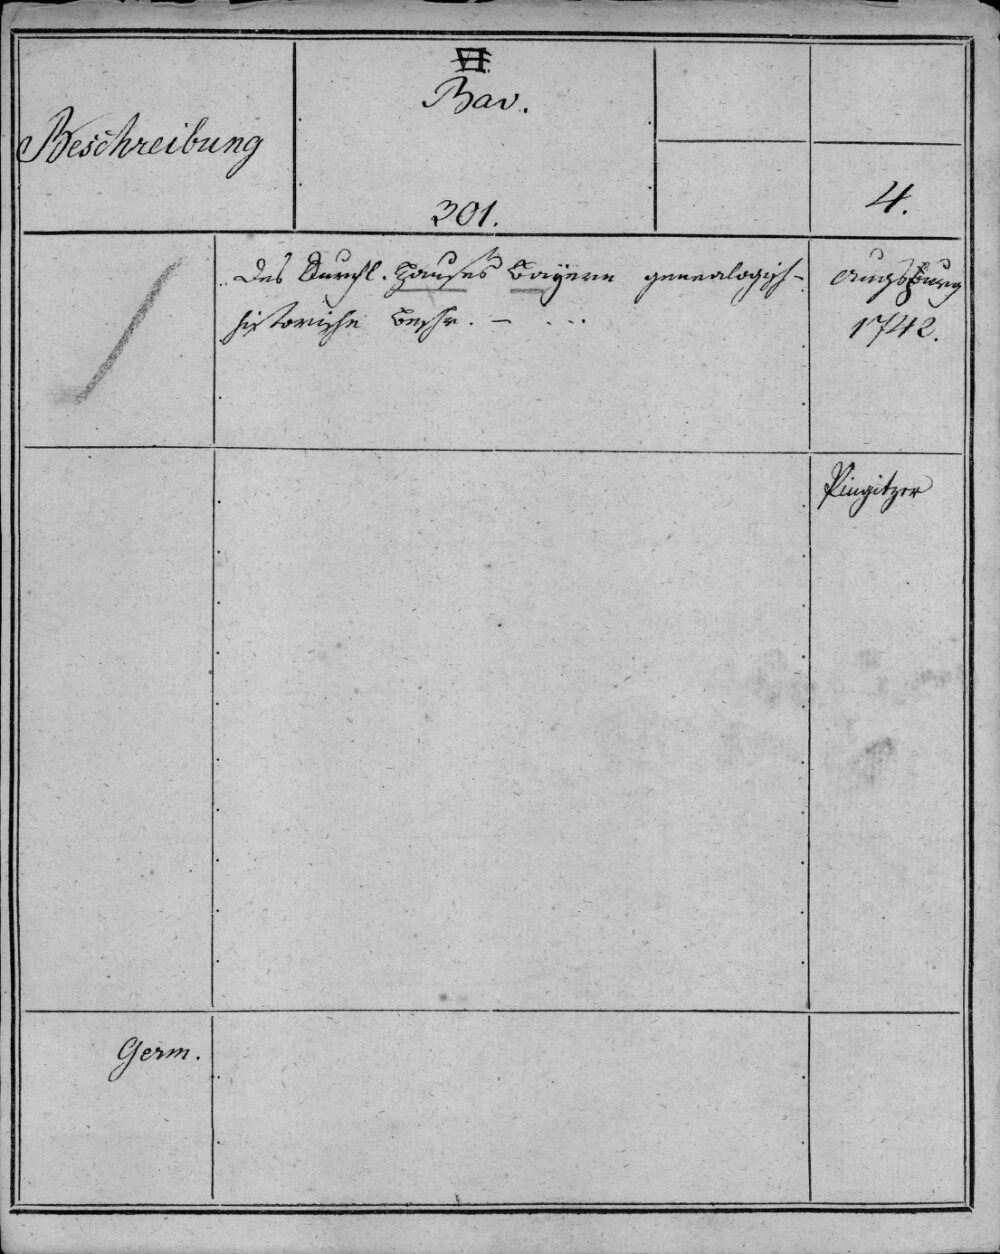 VI
Bav.
Beschreibung
301.
4.
Des Durchl. Hauses Bayern genealogisch-
historische Beschr. - ...
Augsburg
1742.
Pingitzer
Germ.